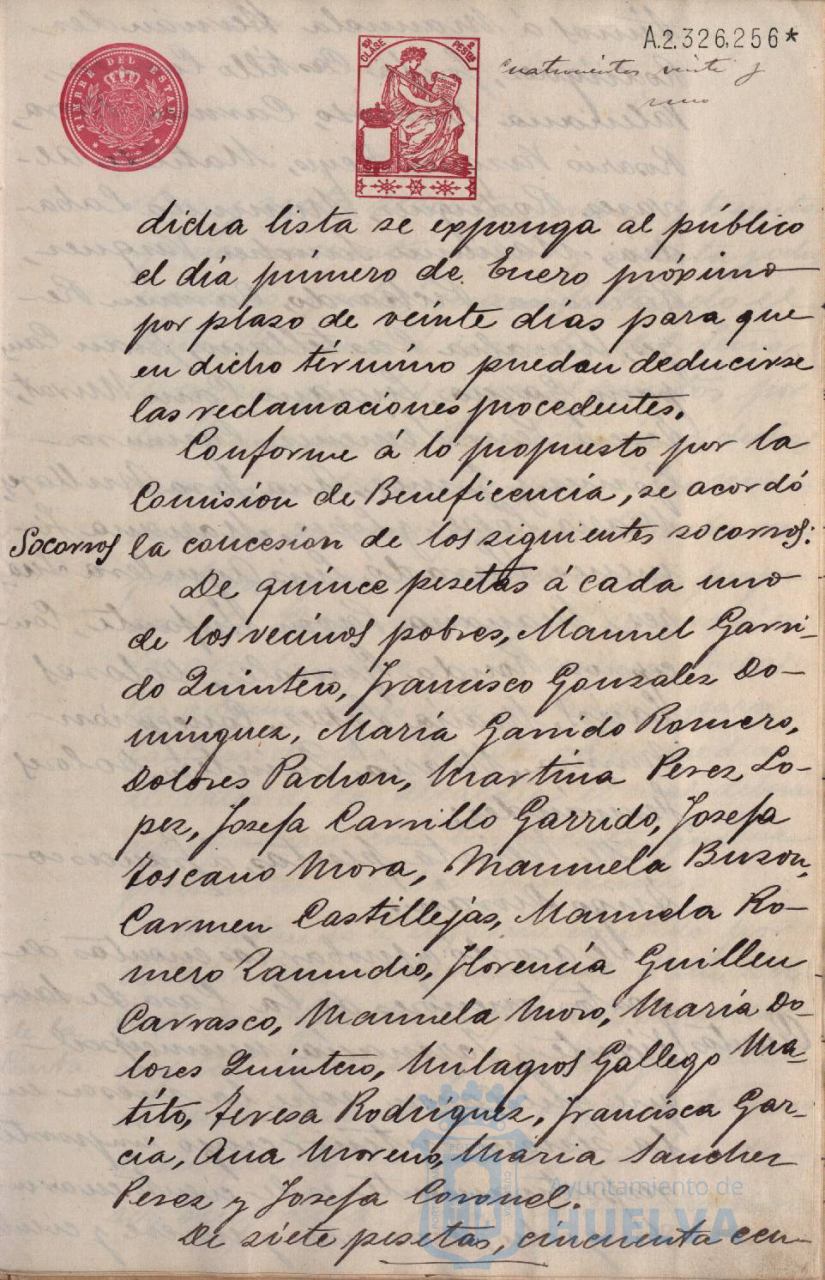 TIMBRE DEL ESTADO
1ª CLASE 2 PESTAS
A.2.326,256*
Cuatrocientos veinte y
uno
dicha lista se exponga al público
el día primero de Enero próximo
por plazo de veinte días para que
en dicho término puedan deducirse
las reclamaciones procedentes.
Conforme á lo propuesto por la
Comision de Beneficencia, se acordó
Socorros
la concesion de los siguientes socorros:
De quince pesetas á cada uno
de los vecinos pobres, Manuel Garri-
do Quintero, Francisco Gonzalez Do-
mínguez, María Garrido Romero,
Dolores Padron, Martina Perez Lo-
pez, Josefa Carrillo Garrido, Josefa
Toscano Mora, Manuela Buzon,
Carmen Castillejas, Manuela Ro-
mero Zamudio, Florencia Guillen
Carrasco, Manuela Moro, María Do-
lores Quintero, Milagros Gallego Ma-
tito, Teresa Rodríguez, Francisca Gar-
cía, Ana Moreno, Maria Sanchez
Perez y Josefa Coronel.
De siete pesetas, cincuenta cen-
Ayuntamiento de
HUELVA